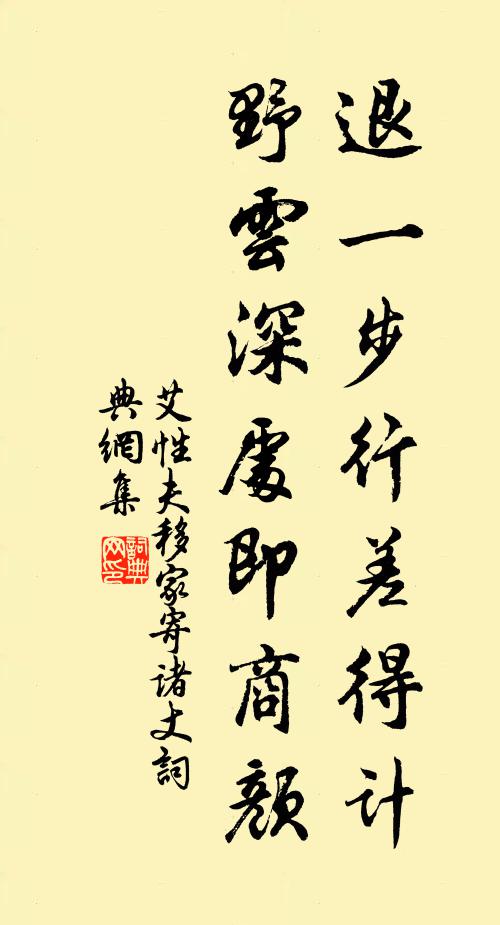 退一步行差得计
野雲深處即商顏
艾性夫移家寄诸丈詞
典網集
詞典
网印